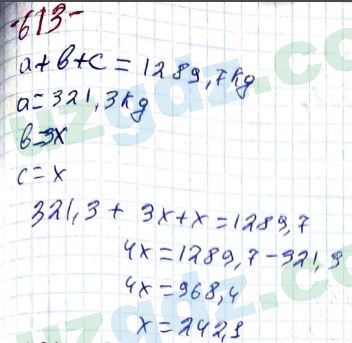 -613-
a+b+c=1289,7kg
a=321,3kg
b=3x
c=x
321,3+ 3x+x=1289,7
4x=1289,7-321,3
4x=968,4
x=242,1